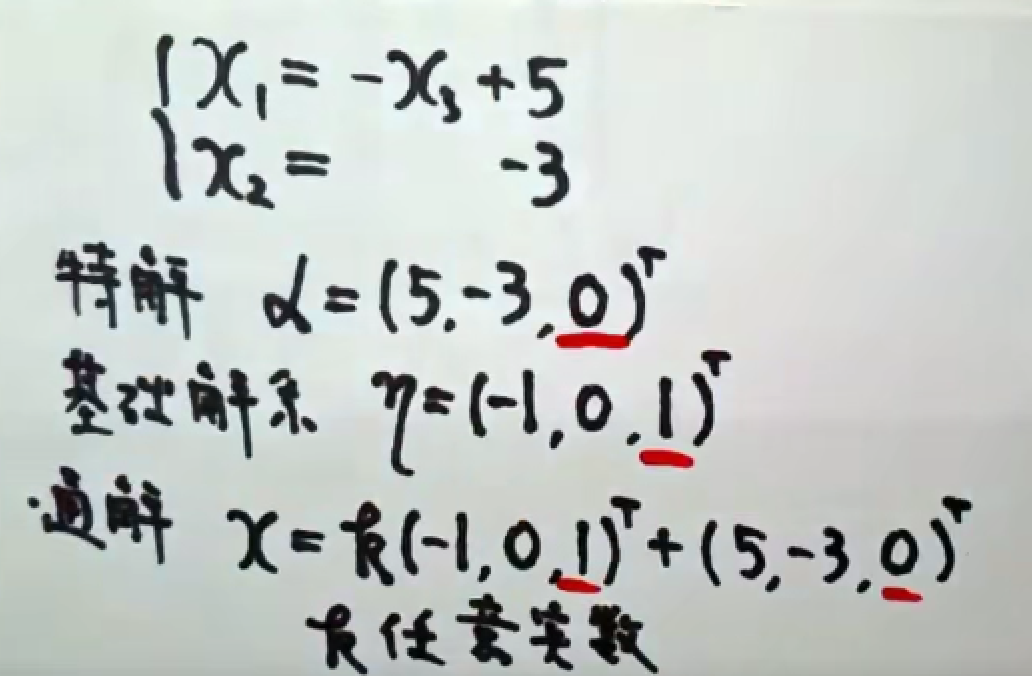 x₁ = -x₃ + 5
x₂ = -3
特解 α = (5, -3, 0)ᵀ
基础解系 η = (-1, 0, 1)ᵀ
通解 x = k(-1, 0, 1)ᵀ + (5, -3, 0)ᵀ
k任意实数